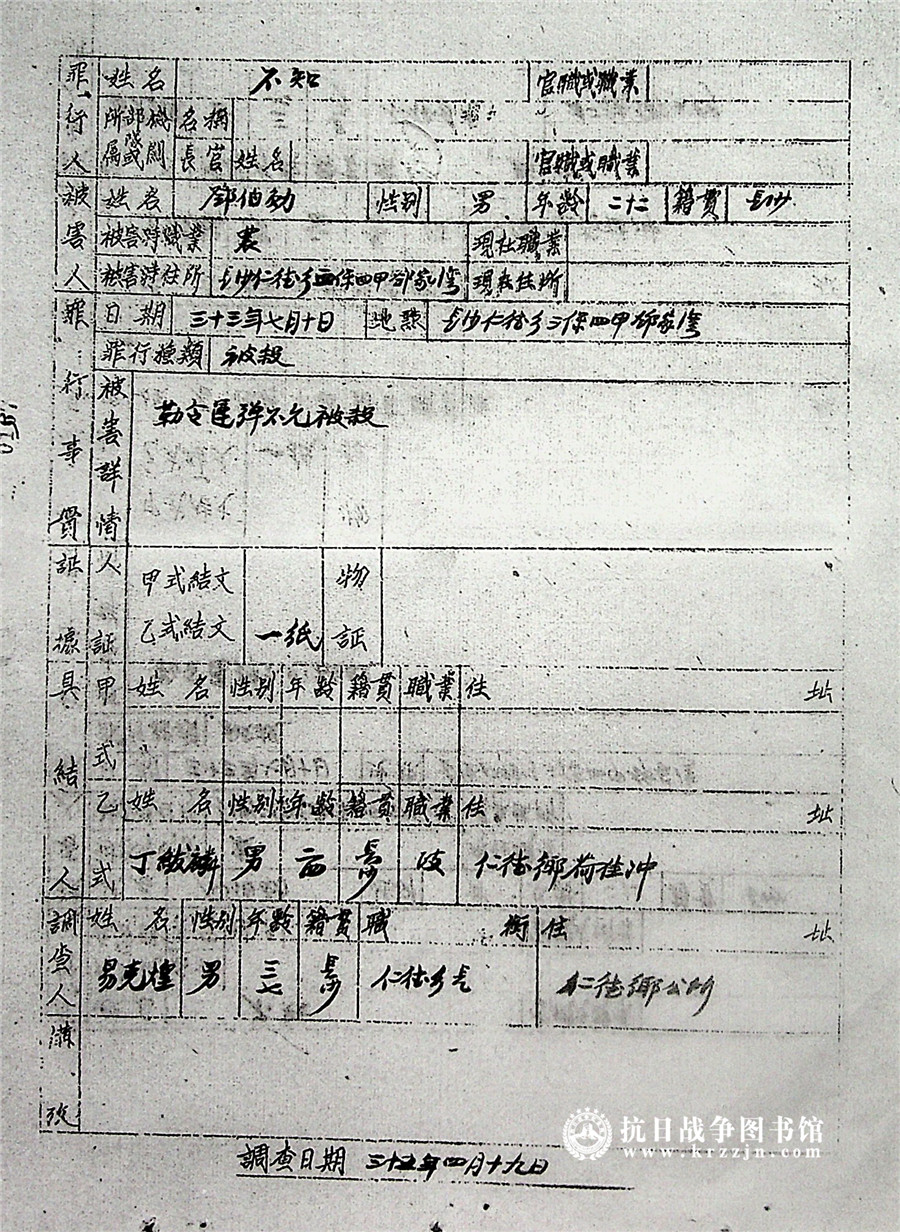 罪行人 姓名 不知 官職或職業
所屬部隊或機關 名稱
長官 姓名 官職或職業
被害人 姓名 鄧伯勛 性别 男 年齡 二十二 籍貫 長沙
被害時職業 農 現在職業
被害時住所 長沙仁德乡三保四甲 現在住所
罪行事實 日期 三十三年七月十日 地點 長沙仁德乡三保四甲
罪行種類 被殺
被害詳情 勒令運弹不允被殺
証據 人証 甲式結文 物証
乙式結文 一紙
具結人 甲式 姓名 性别 年齡 籍貫 職業 住址
乙式 姓名 性别 年齡 籍貫 職業 住址
丁 男 長沙 仁德鄉荷塘冲
調查人 姓名 性别 年齡 籍貫 職銜 住址
易克煌 男 三七 長沙 仁德乡長 仁德鄉公所
備攷
調查日期 三十五年四月十九日
抗日战争图书馆
www.krzzjn.com